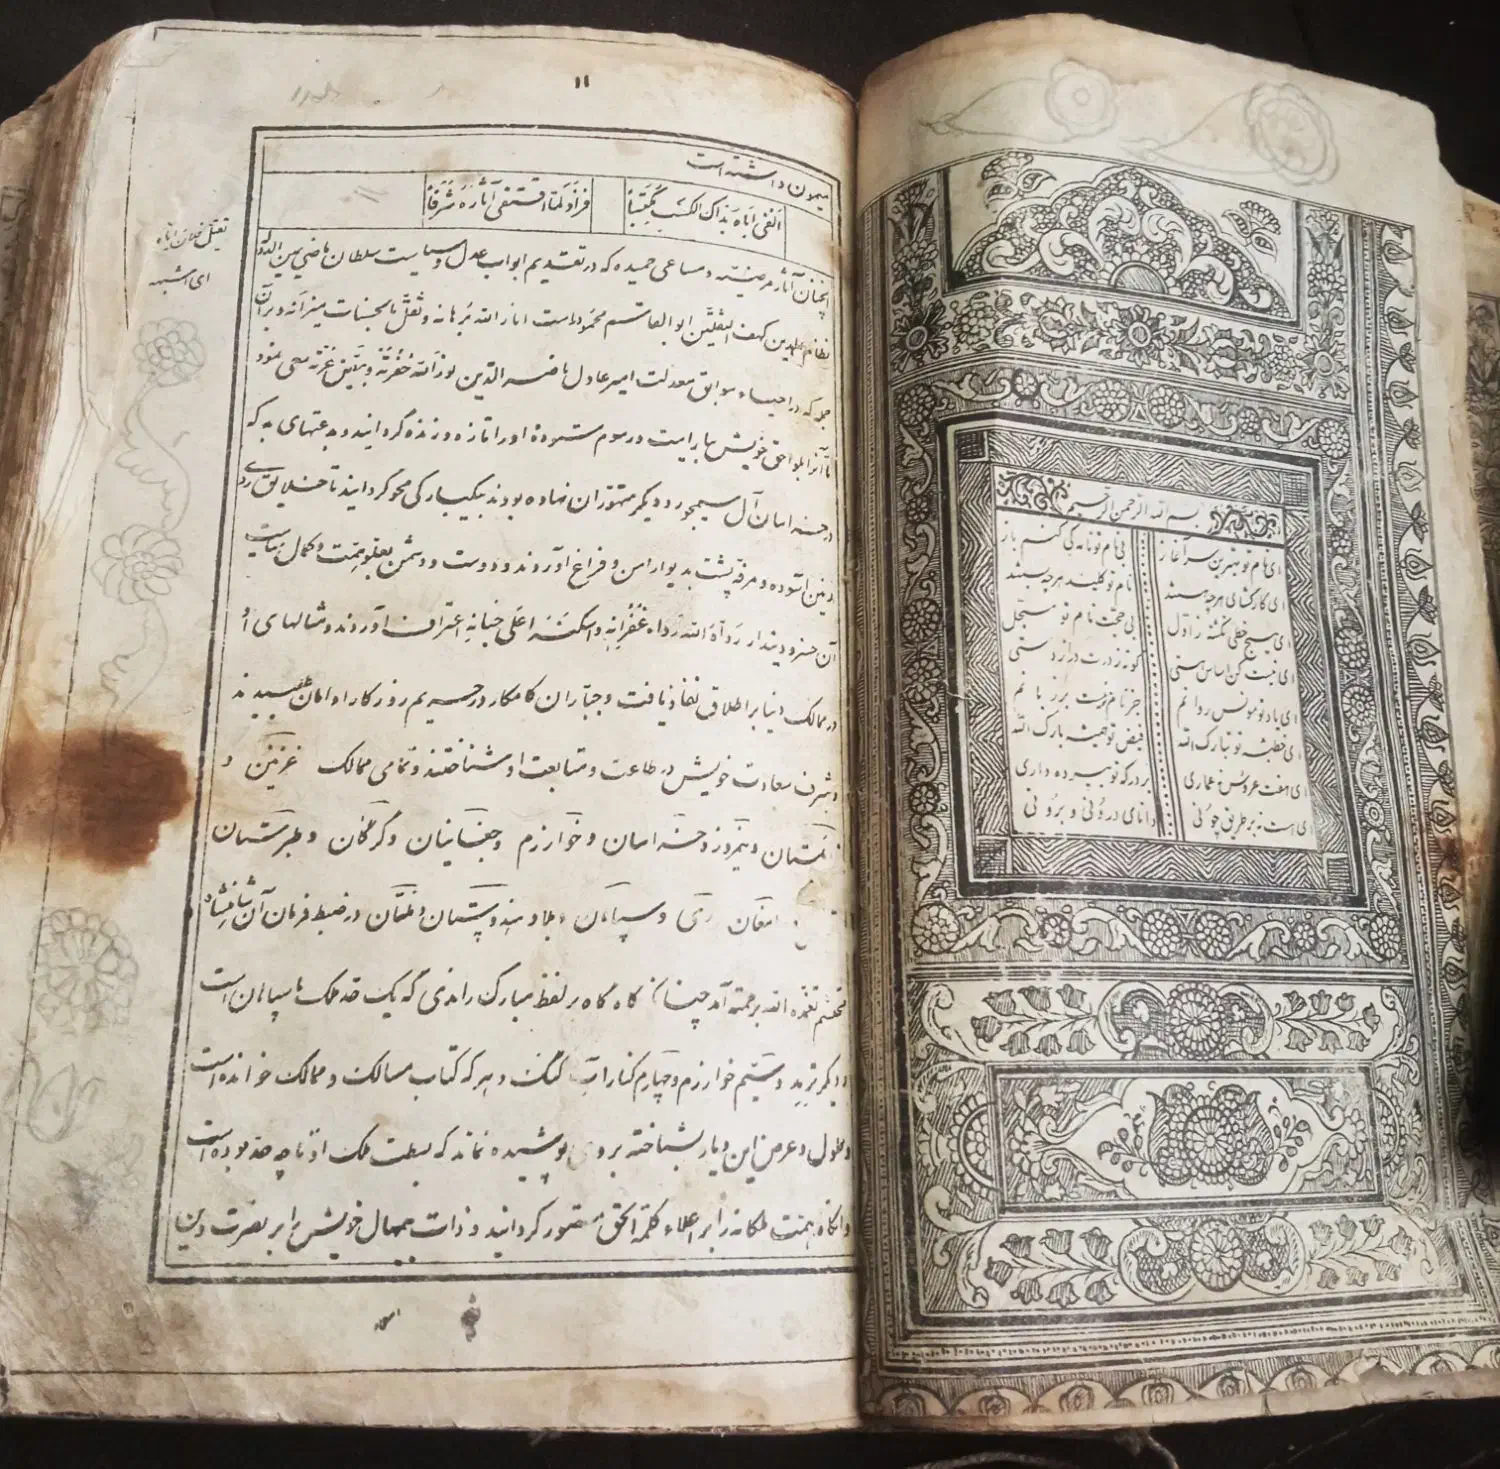 بسم الله الرحمن الرحیم
ای نام تو بهترین سرآغاز بی نام تو نامه کی کنم باز
ای کارگشای هرچه هستند نام تو کلید هرچه بستند
ای هیچ خطی نگشته ز اول بی حجت نام تو مسجل
ای هست کن اساس هستی کوته ز درت دراز دستی
ای یاد تو مونس روانم جز نام تو نیست بر زبانم
ای خطبه تو تبارک الله فیض تو همیشه بارک الله
ای هفت عروس نه عماری بر درگه تو بپرده داری
ای هست نه بر طریق چونی دانای درونی و برونی
۱۱
میمون داشته است
الفی اباه بذاک الکسب مکتسبا
آثار مرضیه و مساعی حمیده که در تقدیم ابواب عدل و سیاست سلطان ماضی یمین الدوله
نظام الدین کهف الثقلین ابو القاسم محمود است انار الله برهانه و ثقل بالحسنات میزانه و بر آن
جمله که در احیاء سوابق معدلت امیر عادل ناصر الدین نور الله حفرته و بیض غرته سعی نمود
تا آنرا بلواحق خویش بیاراست و رسوم ستوده او را تازه و زنده گردانید و بدعتهای بد که
در خراسان آل سیمجور و دیگر متهوران نهاده بودند بیکبارکی محو گردانید تا خلایق روی
زمین آسوده و مرفه پشت به دیوار امن و فراغ آوردند و دوست و دشمن بعلو همت و کمال سیاست
آن خسرو دیندار رداه الله رداء غفرانه و اسکنه اعلی جنانه اعتراف آوردند و مثالهای او
در ممالک دنیا بر اطلاق نفاذ یافت و جباران کامکار در حریم روزکار او امان طلبیدند
و شرف سعادت خویش در طاعت و متابعت او شناختند و تمامی ممالک غزنین و
و نیمروز و خراسان و خوارزم و چغانیان و گرگان و طبرستان
دامغان ری و سپاهان و بلاد هندوستان و ملتان در ضبط فرمان آن شاهنشاه
محتشم تغمده الله برحمته آمد چنانکه گاه گاه بر لفظ مبارک راندی که یک حد ملک ما سپاهان است
و دیگر ترمذ و سیم خوارزم و چهارم کنار آب گنگ و هر که کتاب مسالک و ممالک خوانده است
و طول و عرض این دیار بشناخته بر وی پوشیده نماند که بسطت ملک او تا چه حد بوده است
و انگاه همت ملکانه را بر اعلاء کلمة الحق مقصور گردانید و ذات بیهمال خویش را بر نصرت دین